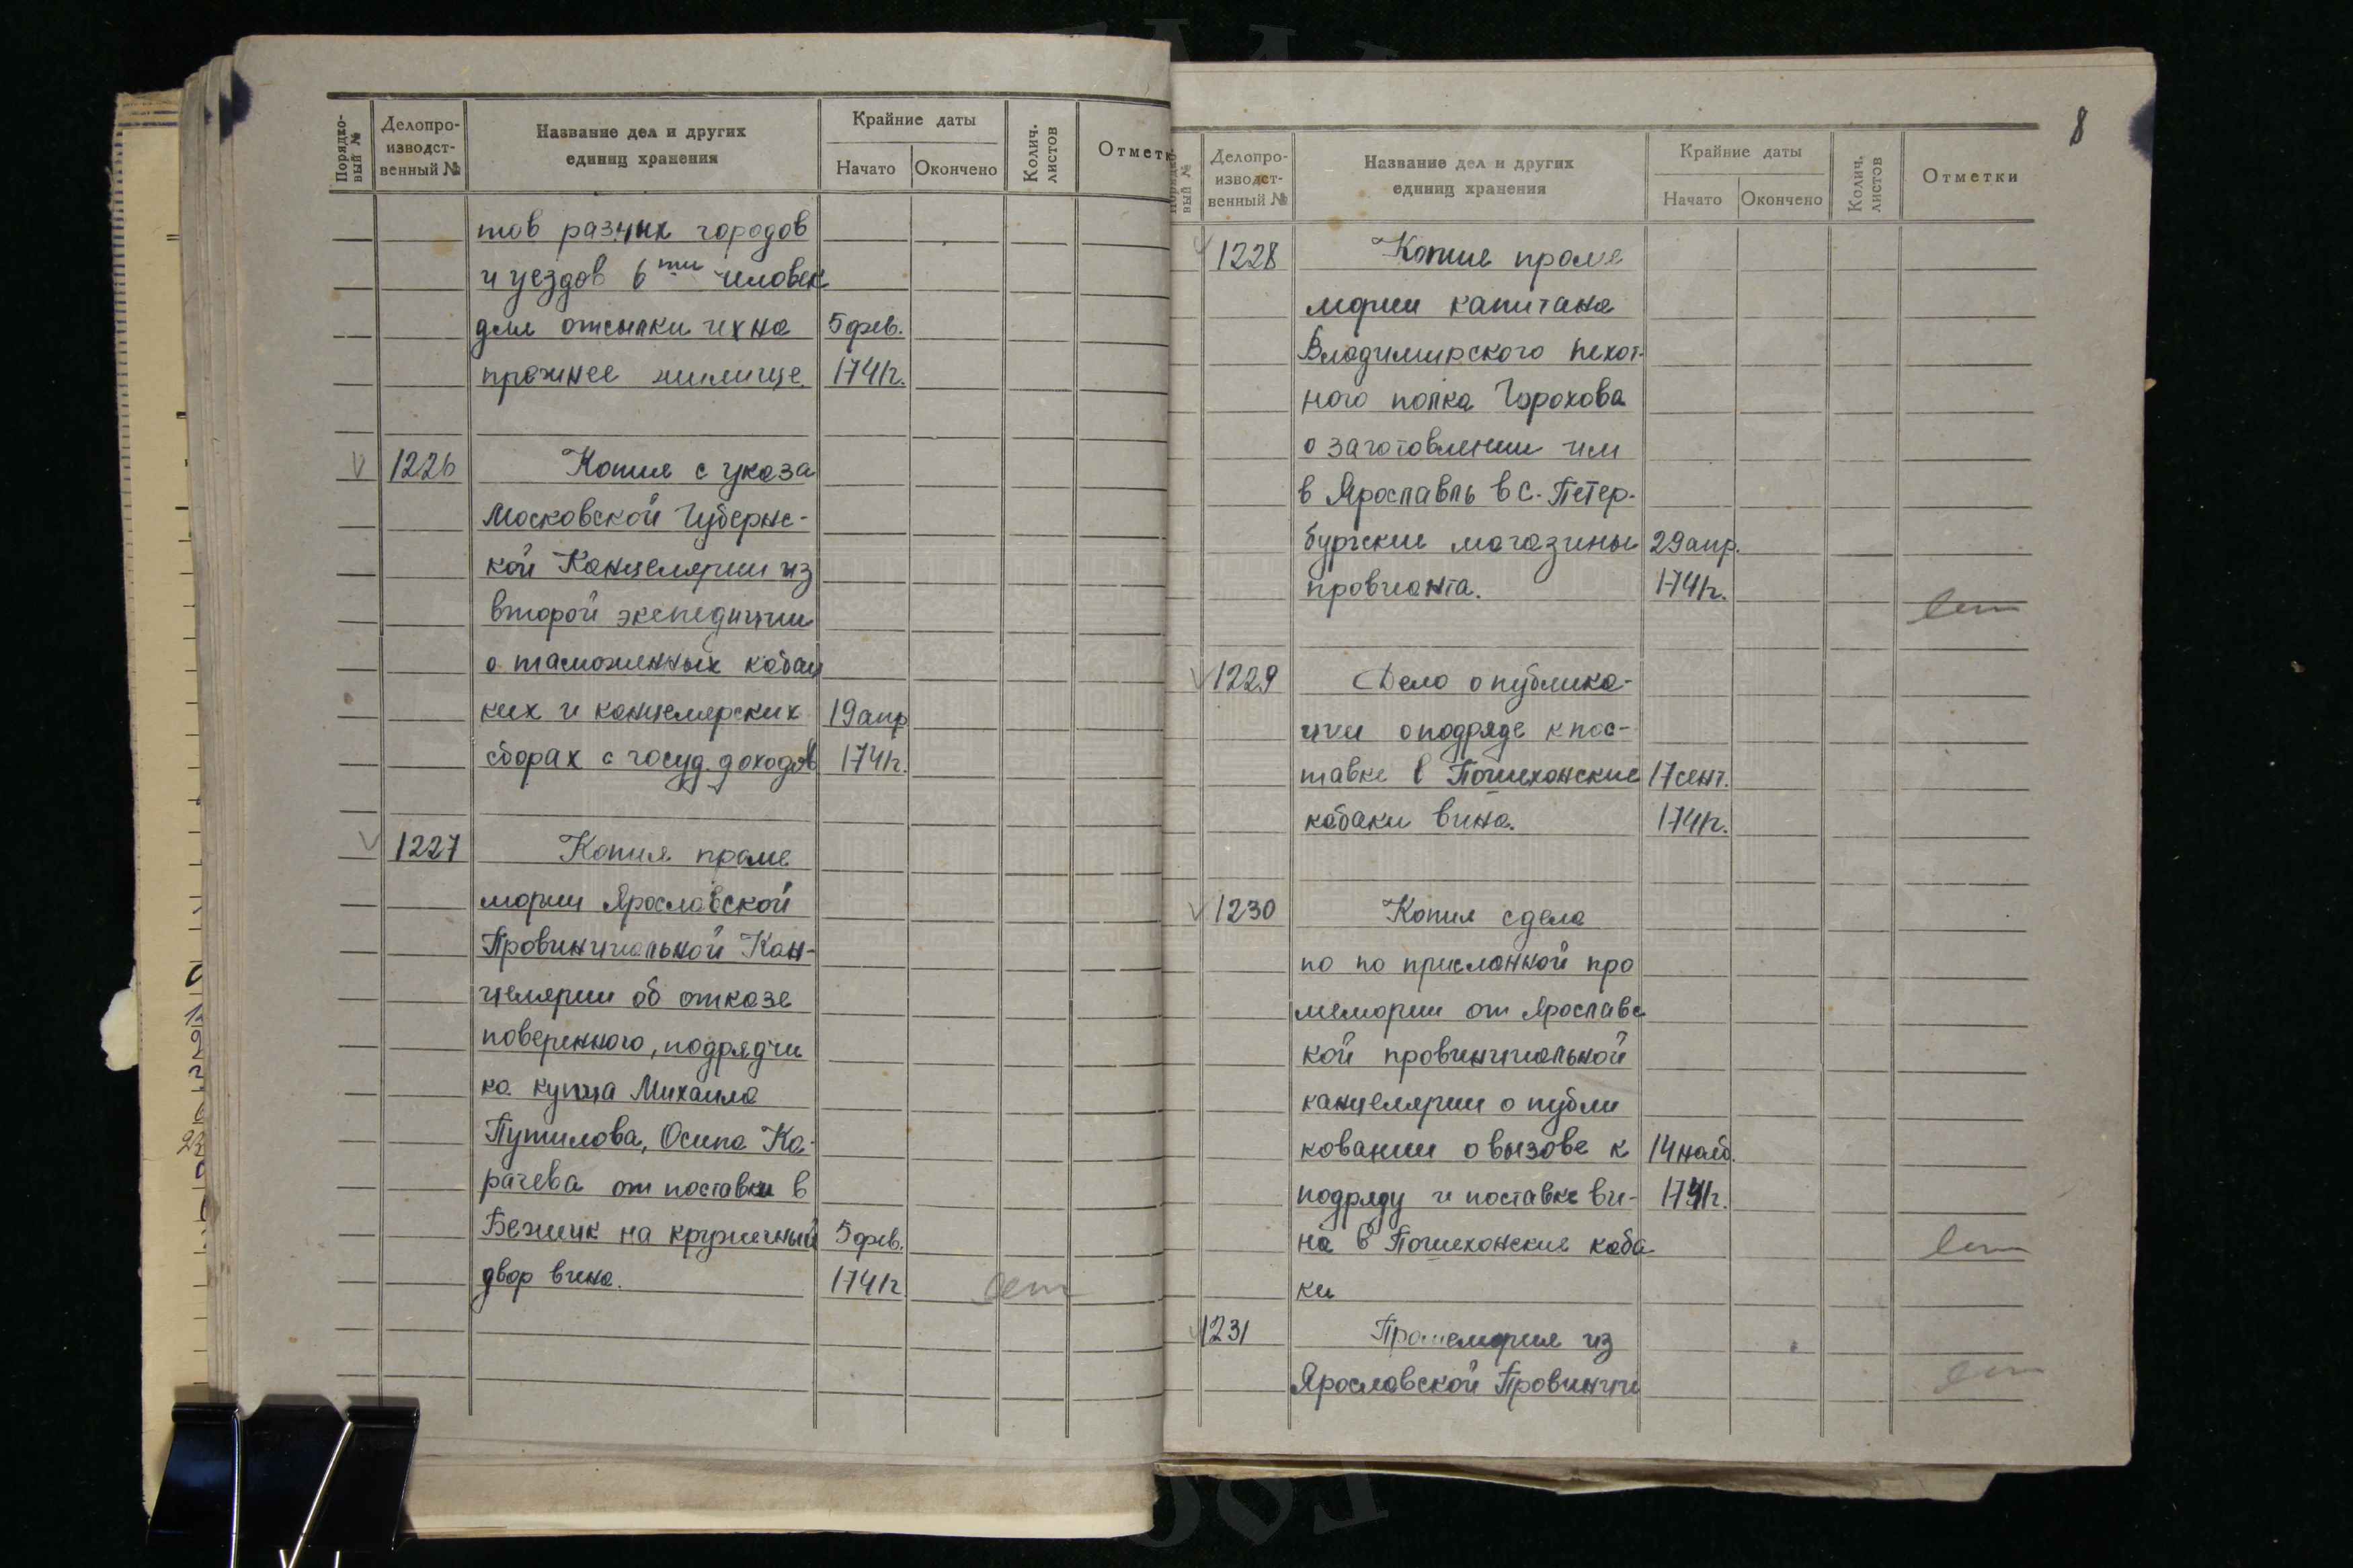 Порядко-
вый №
Делопро-
изводст-
венный №
Название дел и других
единиц хранения
Крайние даты
Начато
Окончено
Колич.
листов
Отметк
тов разных городов
и уездов 6ти человек
для отсылки их на 5 фев.
прежнее жилище. 1741г.
V 1226 Копия с указа
Московской Губернс-
кой Канцелярии из
второй экспедиции
о таможенных кабац
ких и канцелярских 19 апр
сборах с госуд. доходов 1741г.
V 1227 Копия проме
мории Ярославской
Провинциальной Кан-
целярии об отказе
поверенного, подрядчи
ка купца Михаила
Путилова, Осипа Ка-
рачева от поставки в
Бежицк на кружечный 5 фев.
двор вина. 1741г
есть
8
Порядко-
вый №
Делопро-
изводст-
венный №
Название дел и других
единиц хранения
Крайние даты
Начато
Окончено
Колич.
листов
Отметки
V 1228 Копие проме
мории капитана
Владимирского пехот-
ного полка Горохова
о заготовлении им
в Ярославль в С. Петер-
бургские магазины 29 апр.
провианта. 1741г.
есть
V 1229 Дело о публика-
ции о подряде к пос-
тавке в Пошехонские 17 сент.
кабаки вина. 1741г.
V 1230 Копия с дела
по по присланной про
мемории от Ярославс
кой провинциальной
канцелярии о публи
ковании о вызове к 14 нояб.
подряду и поставке ви- 1741г.
на в Пошехонские каба
есть
ки
V 1231 Промемория из
Ярославской Провинци
есть